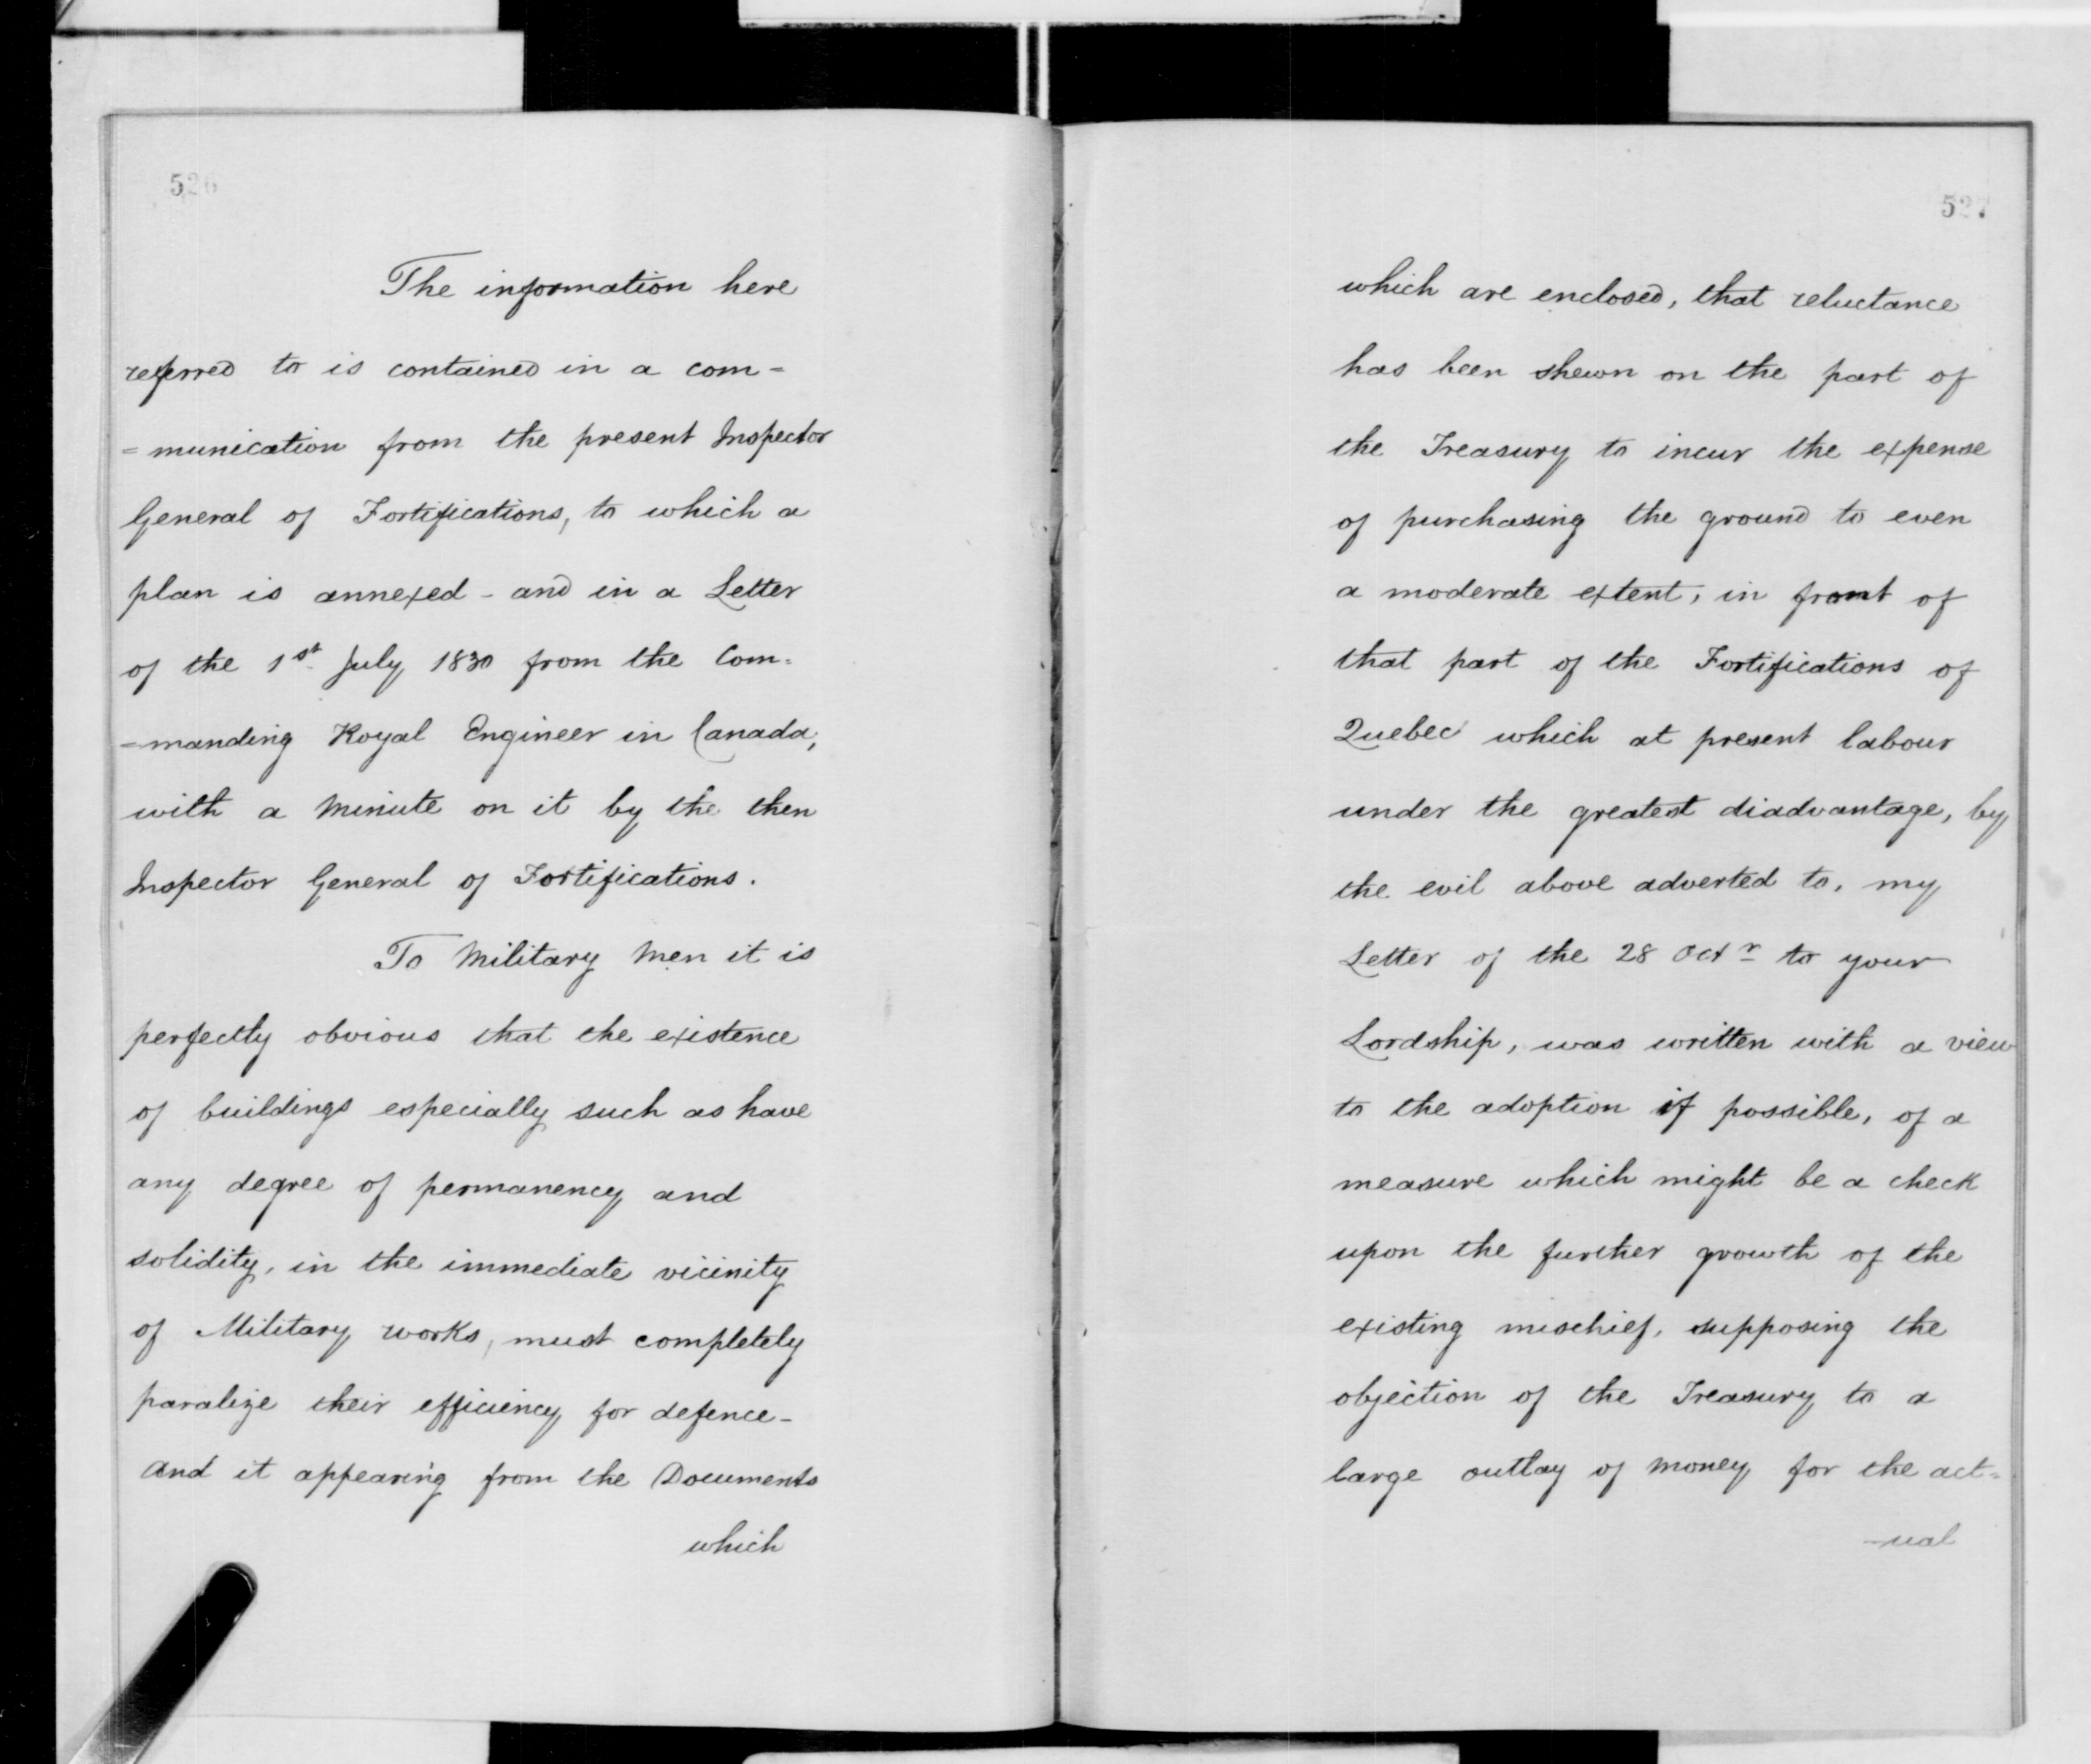 526
The information here
referred to is contained in a com=
=munication from the present Inspector
General of Fortifications, to which a
plan is annexed - and in a Letter
of the 1st July 1830 from the Com=
=manding Royal Engineer in Canada,
with a Minute on it by the then
Inspector General of Fortifications.
To Military Men it is
perfectly obvious that the existence
of buildings especially such as have
any degree of permanency and
solidity, in the immediate vicinity
of Military works, must completely
paralize their efficiency for defence -
and it appearing from the Documents
which
527
which are enclosed, that reluctance
has been shewn on the part of
the Treasury to incur the expense
of purchasing the ground to even
a moderate extent, in front of
that part of the Fortifications of
Quebec which at present labour
under the greatest diadvantage, by
the evil above adverted to, my
Letter of the 28 Octr to your
Lordship, was written with a view
to the adoption if possible, of a
measure which might be a check
upon the further growth of the
existing mischief, supposing the
objection of the Treasury to a
large outlay of money for the act=
-ual